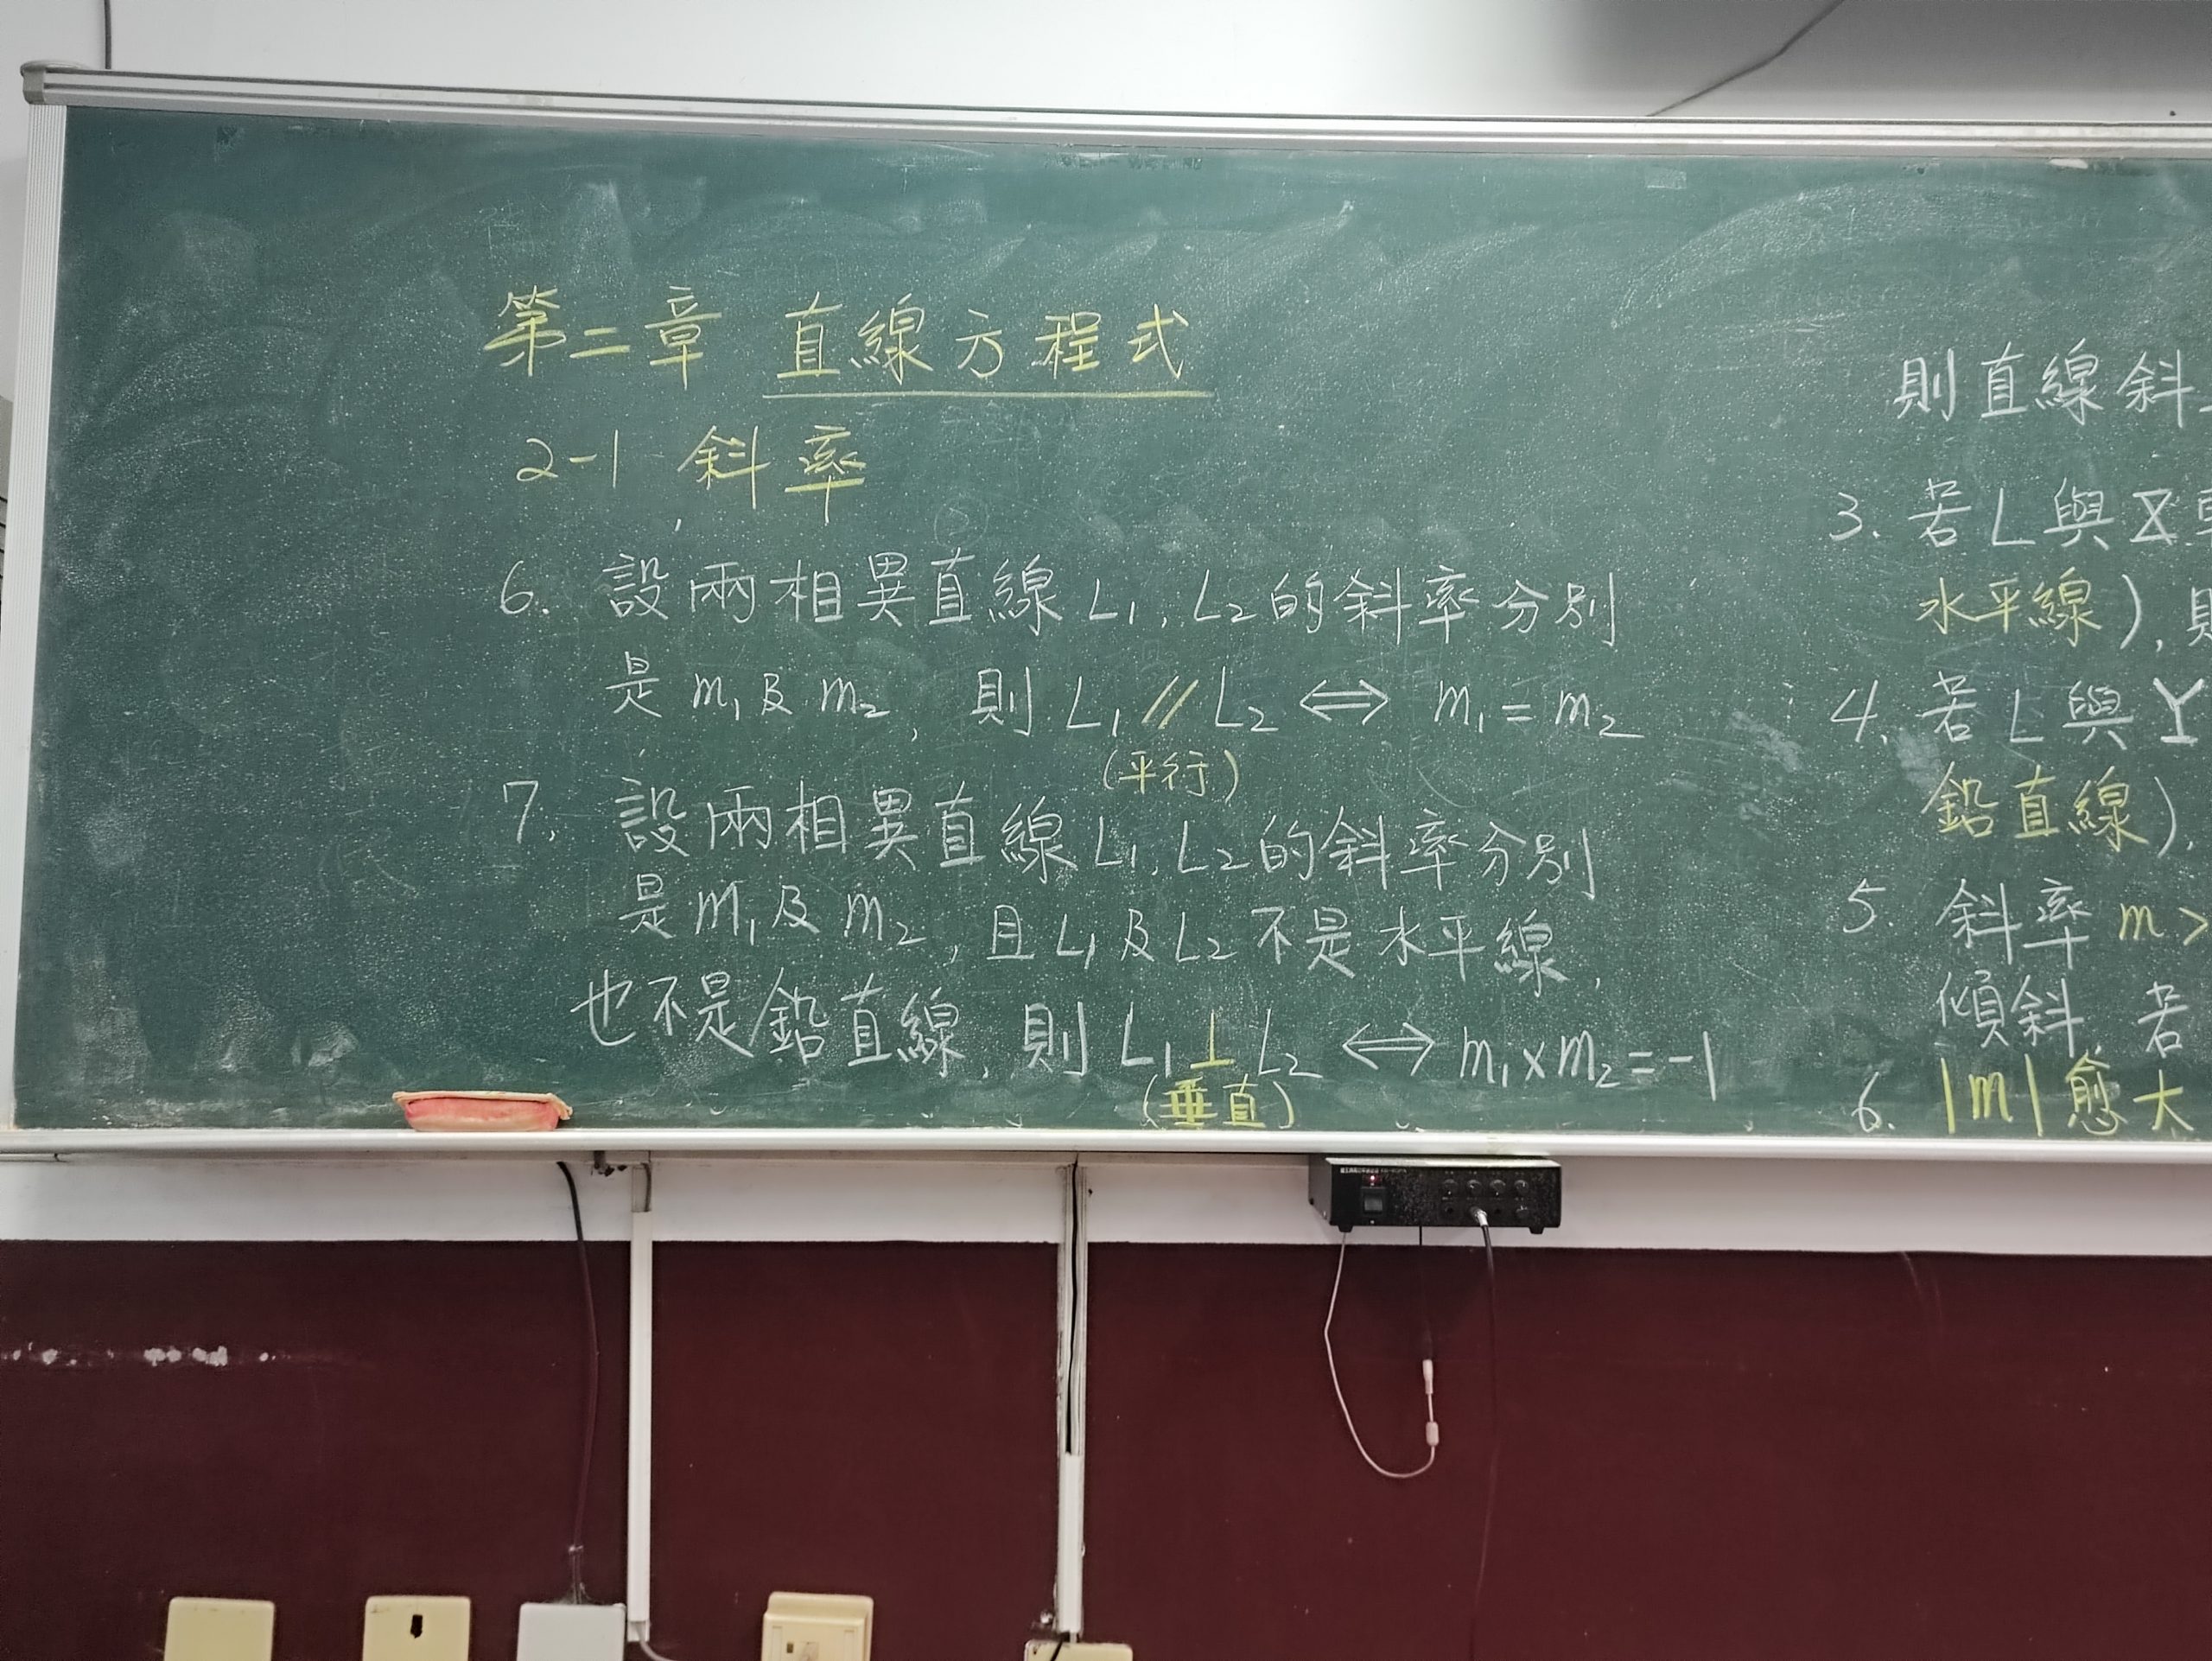 第二章 直線方程式
2-1 斜率
6. 設兩相異直線 L₁, L₂ 的斜率分別
是 m₁ 及 m₂, 則 L₁ // L₂ ⇔ m₁ = m₂
(平行)
7. 設兩相異直線 L₁, L₂ 的斜率分別
是 m₁ 及 m₂, 且 L₁ 及 L₂ 不是水平線,
也不是鉛直線, 則 L₁ ⊥ L₂ ⇔ m₁ x m₂ = -1
(垂直)
則直線斜
3. 若 L 與 X
水平線), 則
4. 若 L 與 Y
鉛直線).
5. 斜率 m >
傾斜, 若
6. |m| 愈大